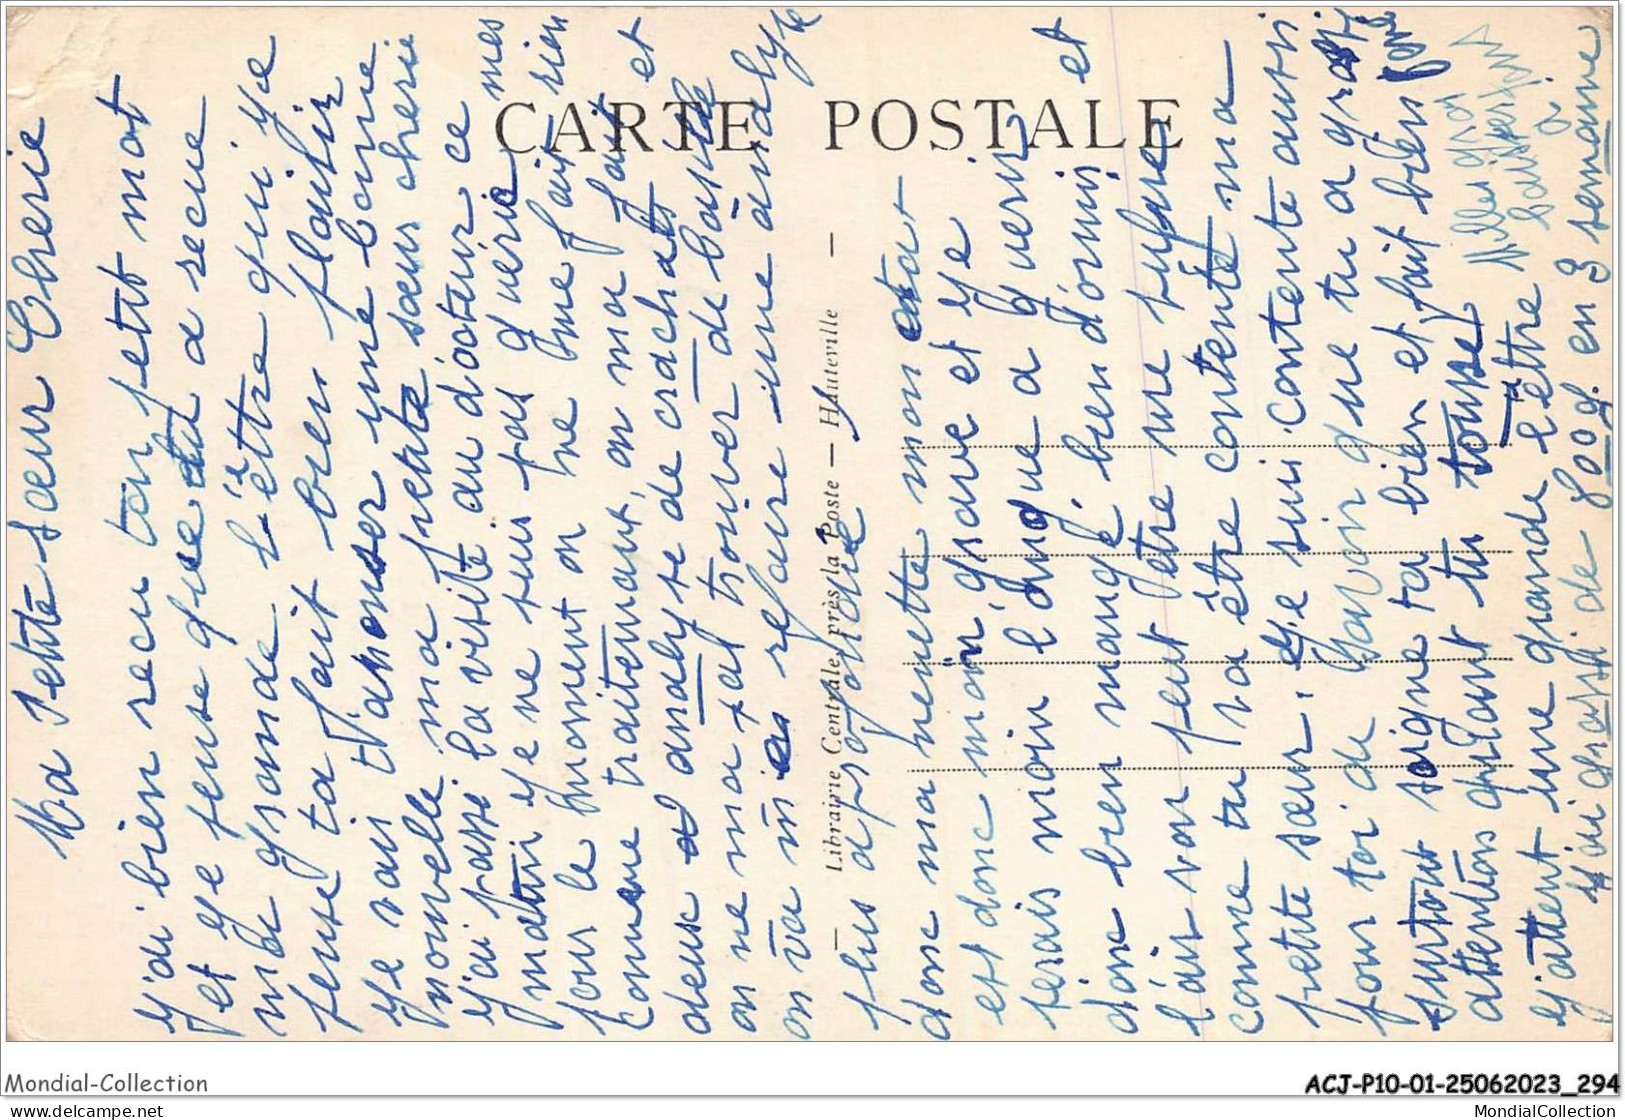 Ma Petite sœur Cherie
j'ai bien recu ton petit mot
et je pense que tu a recue
ma grande lêttre qui je
pense ta fait bien plaisir
je vais t'anonser une bonne
nouvelle ma petite sœur cherie
j'ai passé la visite au docteur ce
matin je ne suis pas guérie mes
pour le moment on ne me fait rien
comme traitement, on ma fait
deux analyse de crachats et
on ne ma pat trouver de bacille
on va m refaire une analyse
plus aprofondie
donc ma nenette mon état
est donc moin grave et je
serais moin longue a guerir
donc bien mangé, bien dormir et
l'air von peut être me sufire
comme tu va être contente ma
petite sœur. je suis contente aussi
pour toi de savoir que tu a grossi
surtout soigne ta bien et fait bien
attentions quant tu tousse
j'attent une grande lêttre
j'ai grossi de 800g. en 3 semaine
CARTE POSTALE
Librairie Centrale, près la Poste — Hauteville
Mondial-Collection
ACJ-P10-01-25062023_294
www.delcampe.net
MondialCollection